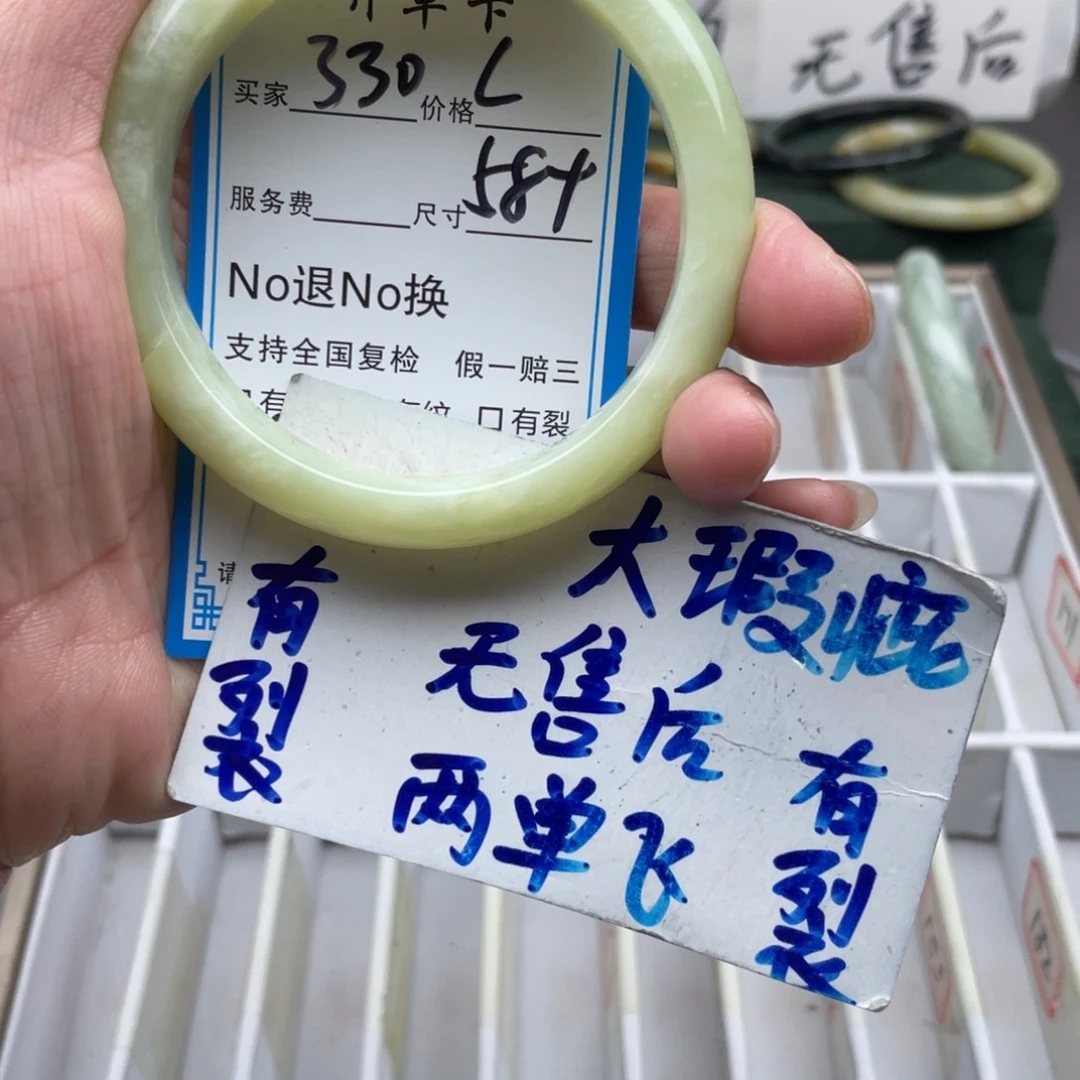 开单卡
买家 330 价格 L
服务费 尺寸 584
No退No换
支持全国复检 假一赔三
有纹 口有裂
请
大瑕疵
无售后
两单飞
有裂
有裂
无售后